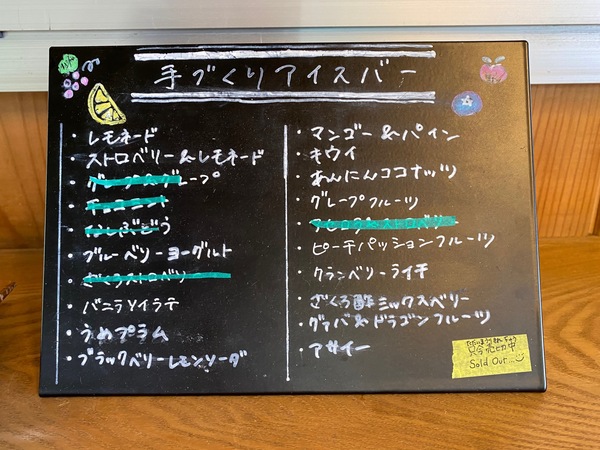 手づくりアイスバー
・レモネード
・ストロベリー&レモネード
・グレープ
・チョココナッツ
・ぶどう
・ブルーベリーヨーグルト
・ざくろストロベリー
・バニラマイラテ
・うめプラム
・ブラックベリーレモンソーダ
・マンゴー&パイン
・キウイ
・あんにんココナッツ
・グレープフルーツ
・ストロベリー
・ピーチパッションフルーツ
・クランベリーライチ
・ざくろ酢ミックスベリー
・グァバ&ドラゴンフルーツ
・アサイー
只今売切中
Sold Out...